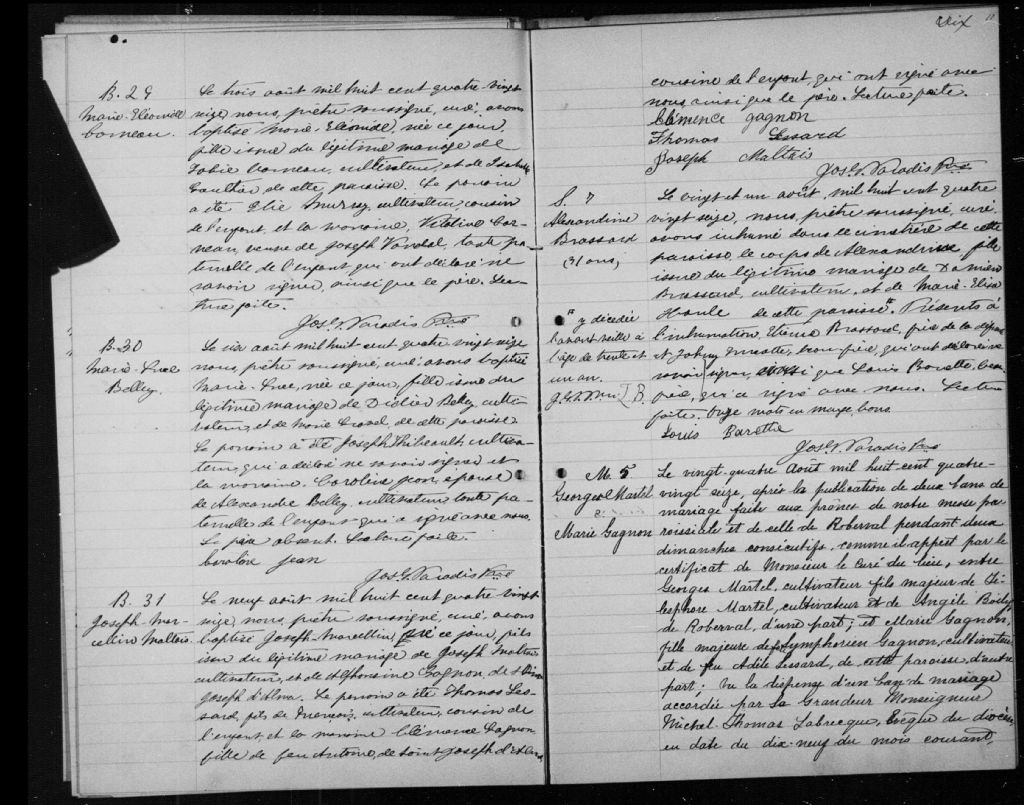 B. 29
Marie-Eléonide
Comeau.
Le trois août mil huit cent quatre vingt
seize, nous, prêtre soussigné, curé, avons
baptisé Marie-Eléonide, née ce jour,
fille issue du légitime mariage de
Comeau, cultivateur, et de
de cette paroisse. Le parrain
a été Elie cultivateur, cousin
de l'enfant, et la marraine,
veuve de Joseph tante pa-
ternelle de l'enfant qui ont déclaré ne
savoir signer, ainsi que le père. Lec-
ture faite.
Jos. G. Paradis Ptre
B. 30
Marie-Luce
Belley.
Le six août mil huit cent quatre vingt seize
nous, prêtre soussigné, curé, avons baptisé
Marie-Luce, née ce jour, fille issue du
légitime mariage de Didier Belley, culti-
vateur, et de Marie de cette paroisse
Le parrain a été Joseph Thibeault, cultiva-
teur, qui a déclaré ne savoir signer et
la marraine, Caroline Jean, épouse
de Alexandre Belley, cultivateur, tante pa-
ternelle de l'enfant qui a signé avec nous.
Le père absent. Lecture faite.
Caroline Jean
Jos. G. Paradis Ptre
B. 31
Joseph-Mar-
cellin Maltais.
Le neuf août mil huit cent quatre vingt
seize, nous, prêtre soussigné, curé, avons
baptisé Joseph-Marcellin, né ce jour, fils
issu du légitime mariage de Joseph Maltais
cultivateur, et de Alphonsine Gagnon, de St
Joseph d'Alma. Le parrain a été Thomas Les-
sard, fils de François, cultivateur, cousin de
l'enfant et la marraine Clémence Gagnon
fille de feu Antoine, de Saint Joseph d'Alma
Dix
cousine de l'enfant, qui ont signé avec
nous ainsi que le père. Lecture faite.
Clémence Gagnon
Thomas Lessard
Joseph Maltais
Jos. G. Paradis Ptre
S. 7
Alexandrine
Brassard
(31 ans)
Le vingt et un août, mil huit cent quatre
vingt seize, nous, prêtre soussigné, curé,
avons inhumé dans le cimetière de cette
paroisse, le corps de Alexandrine, fille
issue du légitime mariage de Damien
Brassard, cultivateur, et de Marie-Elisa
Houle de cette paroisse*. Présents à
l'inhumation, Etienne Brassard, frère de la défunte
et Johny beau-frère, qui ont déclaré ne
savoir signer, ainsi que Louis Barette, beau
frère, qui a signé avec nous. Lecture
faite. Onze mots en marge, bons.
* y décédée
l'avant-veille à
l'âge de trente et
un ans.
Louis Barette
Jos. G. Paradis Ptre
M. 5
Georges Martel
&
Marie Gagnon
Le vingt-quatre Août mil huit cent quatre-
vingt seize, après la publication de deux bans de
mariage faite aux prônes de notre messe pa-
roissiale et de celle de Roberval pendant deux
dimanches consécutifs, comme il appert par le
certificat de Monsieur le Curé du lieu, entre
Georges Martel, cultivateur, fils majeur de Té-
lesphore Martel, cultivateur et de Angèle Boily,
de Roberval, d'une part; et Marie Gagnon,
fille majeure de Symphorien Gagnon, cultivateur
et de feu Adèle Lessard, de cette paroisse, d'autre
part; Vu la dispense d'un ban de mariage
accordée par Sa Grandeur Monseigneur
Michel-Thomas Labrecque, Evêque du diocèse
en date du dix-neuf du mois courant,